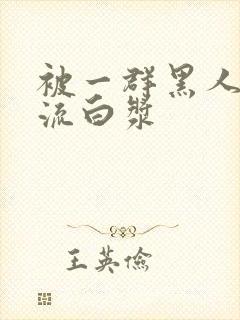 被一群黑人
流白漿
王英儉